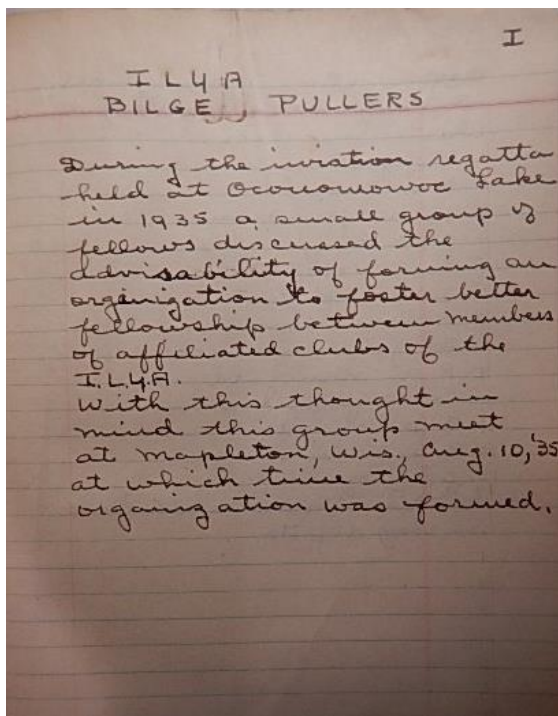 I
ILYA
BILGE PULLERS
During the inviation regatta
held at Oconomowoc Lake
in 1935 a small group of
fellows discussed the
advisability of forming an
organization to foster better
fellowship between members
of affiliated clubs of the
I.L.Y.A.
With this thought in
mind this group meet
at Mapleton, Wis., Aug. 10, '35
at which time the
organization was formed.